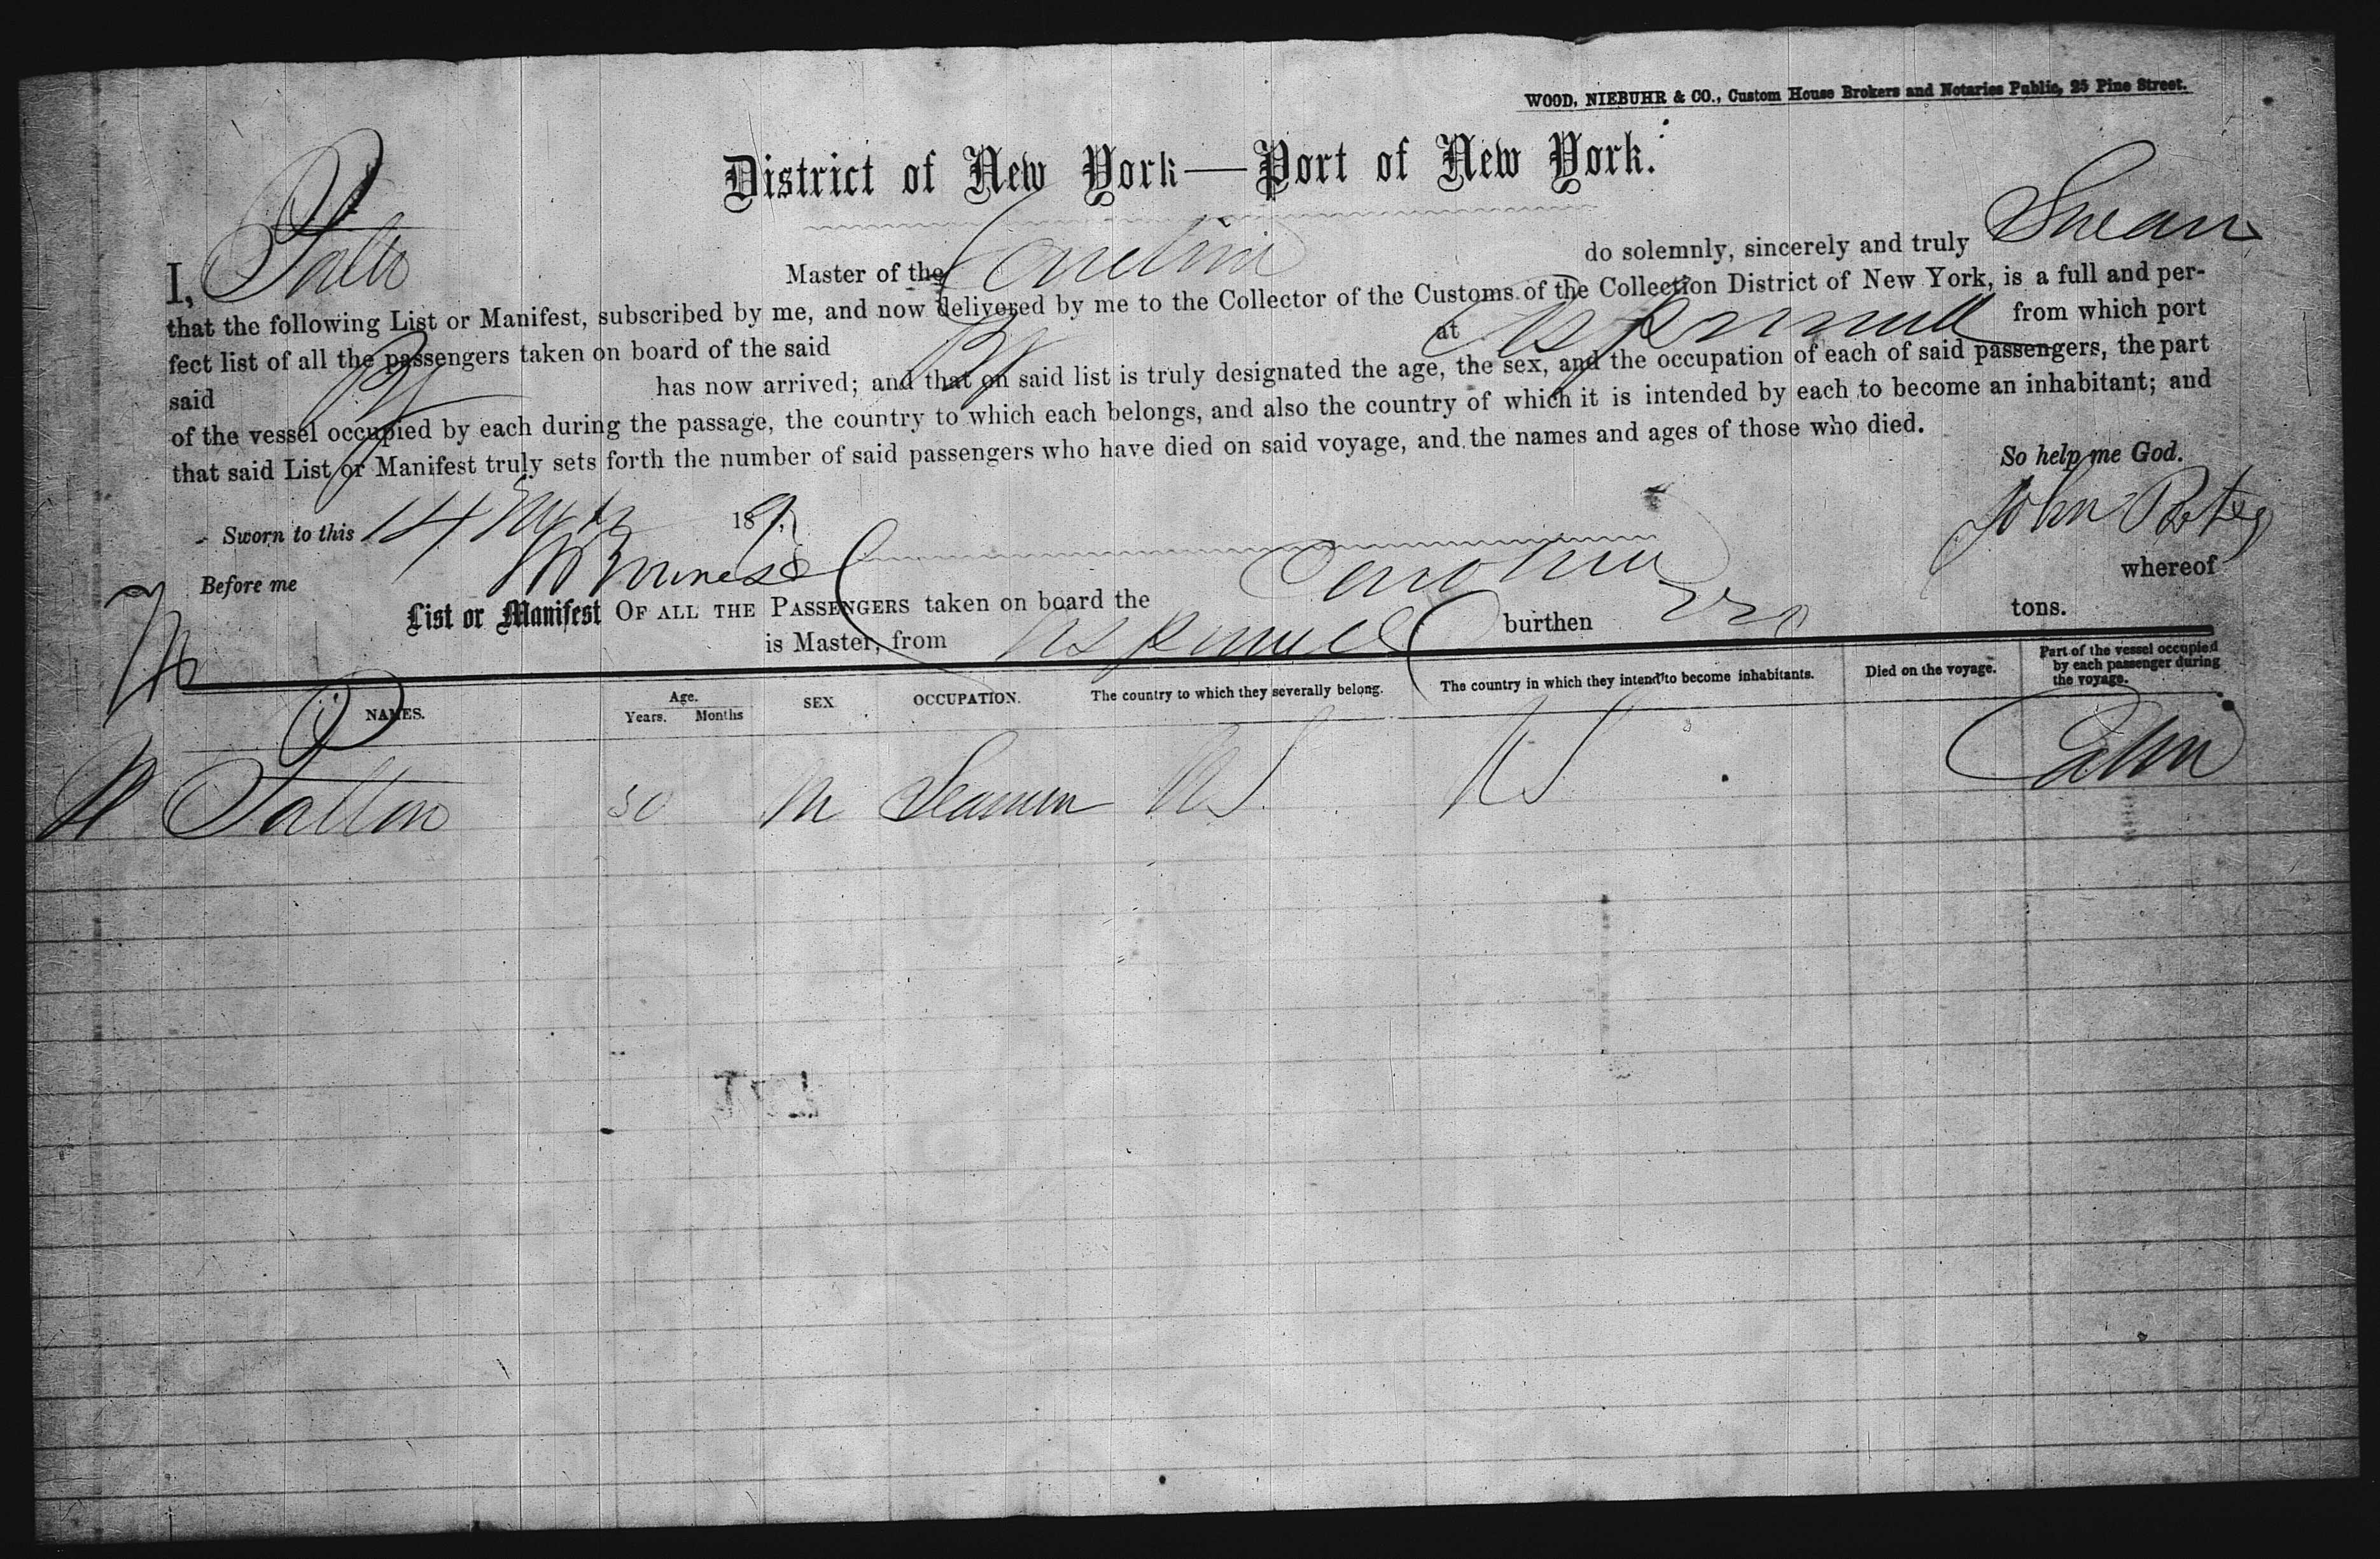 WOOD, NIEBUHR & CO., Custom House Brokers and Notaries Public, 25 Pine Street.
District of New York—Port of New York.
I, Master of the do solemnly, sincerely and truly Swear
that the following List or Manifest, subscribed by me, and now delivered by me to the Collector of the Customs of the Collection District of New York, is a full and per-
fect list of all the passengers taken on board of the said at Aspinwall from which port
said has now arrived; and that on said list is truly designated the age, the sex, and the occupation of each of said passengers, the part
of the vessel occupied by each during the passage, the country to which each belongs, and also the country of which it is intended by each to become an inhabitant; and
that said List or Manifest truly sets forth the number of said passengers who have died on said voyage, and the names and ages of those who died.
So help me God.
Sworn to this 14 187 John
Before me
List or Manifest OF ALL THE PASSENGERS taken on board the whereof
is Master, from Aspinwall burthen 220 tons.
NAMES. Age. Years. Months SEX OCCUPATION. The country to which they severally belong. The country in which they intend to become inhabitants. Died on the voyage. Part of the vessel occupied by each passenger during the voyage.
Patton 30 M Seaman US US Cabin